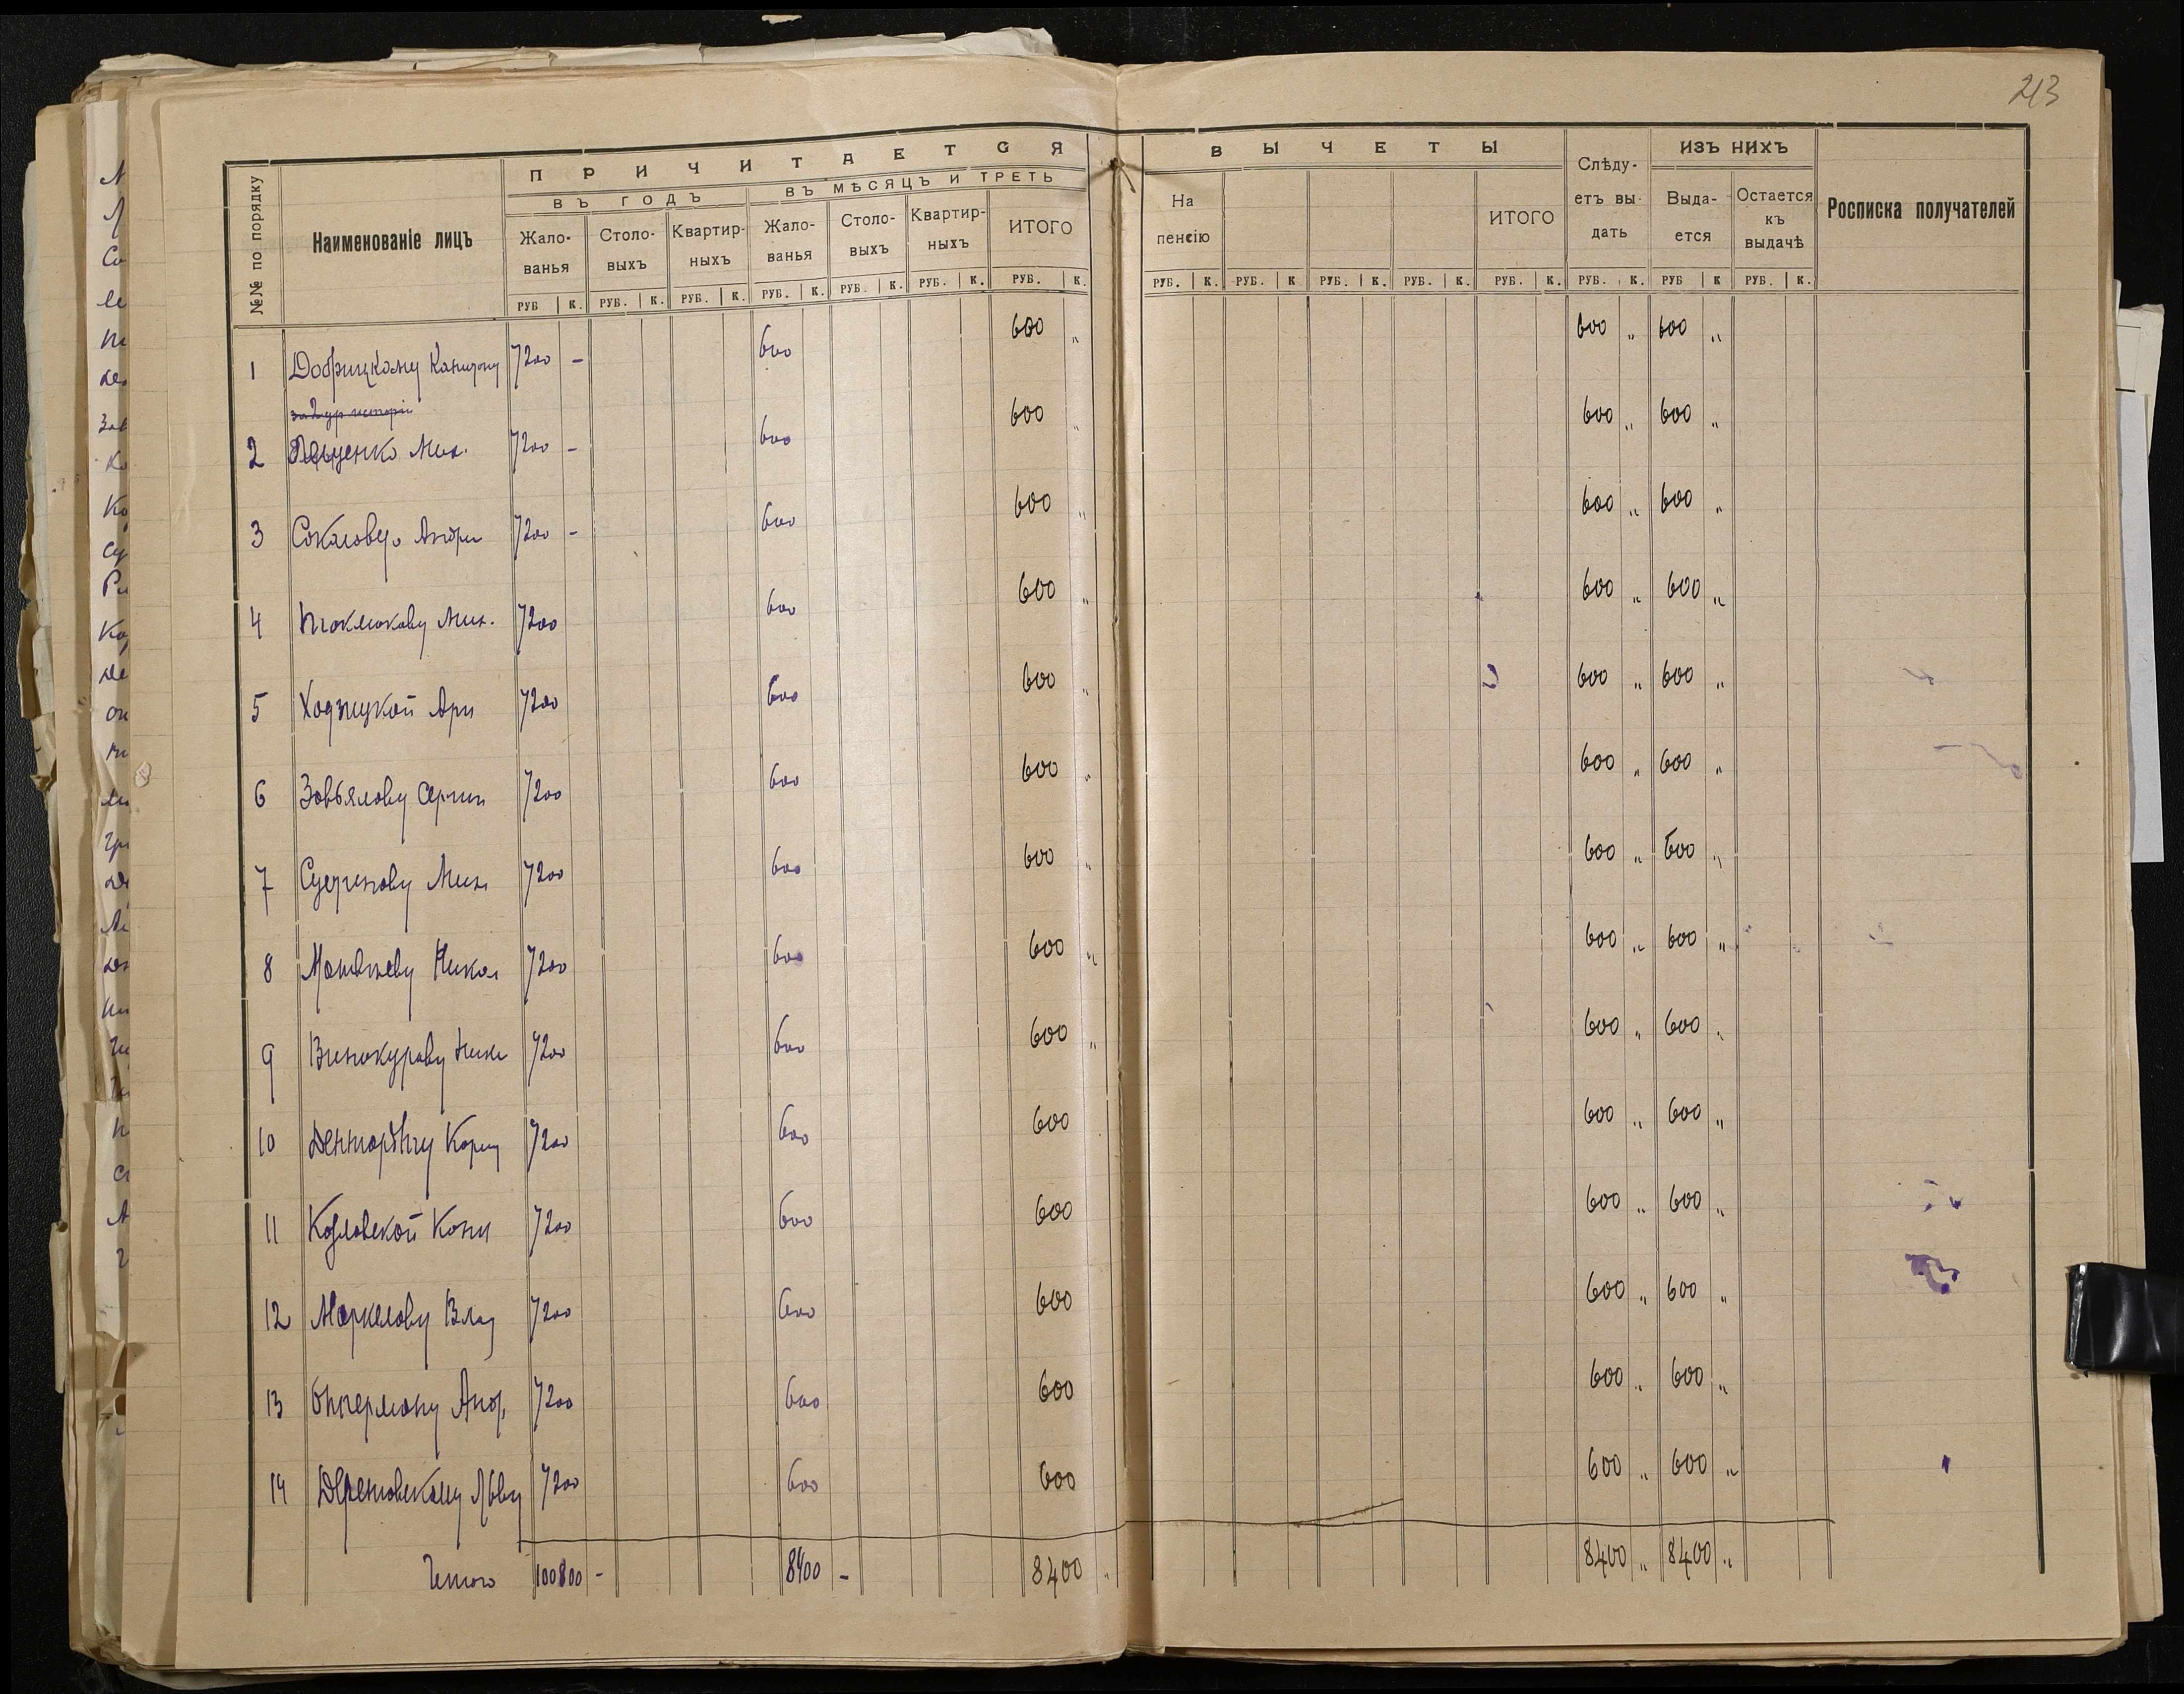 213
№№ по порядку
Наименованіе лицъ
ПРИЧИТАЕТСЯ
ВЪ ГОДЪ
ВЪ МѢСЯЦЪ И ТРЕТЬ
Жало-ванья
Столо-выхъ
Квартир-ныхъ
Жало-ванья
Столо-выхъ
Квартир-ныхъ
ИТОГО
ВЫЧЕТЫ
На пенсію
ИТОГО
Слѣду-етъ вы-дать
ИЗЪ НИХЪ
Выда-ется
Остается къ выдачѣ
Росписка получателей
РУБ К. РУБ. К. РУБ. К. РУБ. К. РУБ. К. РУБ. К. РУБ. К. РУБ. К. РУБ. К РУБ. К. РУБ. К. РУБ. К. РУБ. К. РУБ К РУБ. К.
1 Добрицкому 7200 – 600 600 „ 600 „ 600 „
2 Мих. 7200 – 600 600 „ 600 „ 600 „
3 Андри 7200 – 600 600 „ 600 „ 600 „
4 Мих. 7200 600 600 „ 600 „ 600 „
5 Ходзицкой Ари 7200 600 600 „ 600 „ 600 „
6 Завьялову Серги 7200 600 600 „ 600 „ 600 „
7 Мих 7200 600 600 „ 600 „ 600 „
8 Матвѣеву Никол 7200 600 600 „ 600 „ 600 „
9 Винокурову Ники 7200 600 600 „ 600 „ 600 „
10 7200 600 600 600 „ 600 „
11 Козловской Конн 7200 600 600 600 „ 600 „
12 Маркелову Влад 7200 600 600 600 „ 600 „
13 Анд. 7200 600 600 600 „ 600 „
14 Льву 7200 600 600 600 „ 600 „
Итого 100800 – 8400 – 8400 „ 8400 „ 8400 „